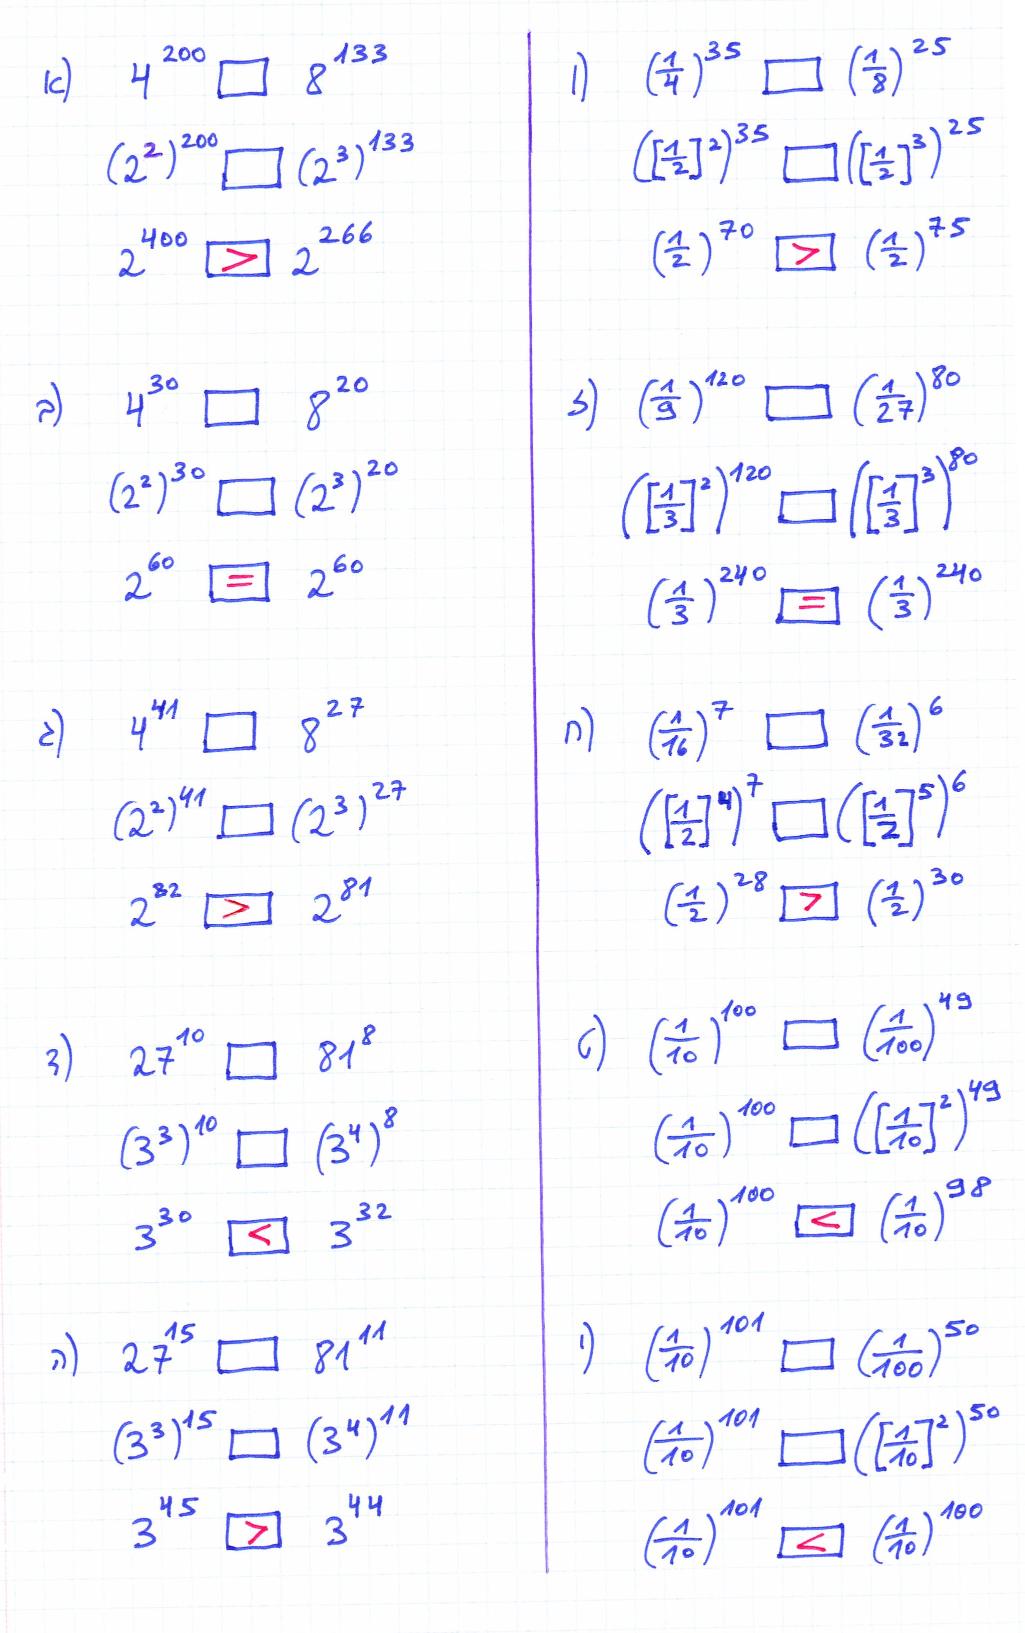 א) 4^200 □ 8^133
(2^2)^200 □ (2^3)^133
2^400 > 2^266
ב) 4^30 □ 8^20
(2^2)^30 □ (2^3)^20
2^60 = 2^60
ג) 4^41 □ 8^27
(2^2)^41 □ (2^3)^27
2^82 > 2^81
ד) 27^10 □ 81^8
(3^3)^10 □ (3^4)^8
3^30 < 3^32
ה) 27^15 □ 81^11
(3^3)^15 □ (3^4)^11
3^45 > 3^44
ו) (1/4)^35 □ (1/8)^25
([1/2]^2)^35 □ ([1/2]^3)^25
(1/2)^70 > (1/2)^75
ז) (1/9)^120 □ (1/27)^80
([1/3]^2)^120 □ ([1/3]^3)^80
(1/3)^240 = (1/3)^240
ח) (1/16)^7 □ (1/32)^6
([1/2]^4)^7 □ ([1/2]^5)^6
(1/2)^28 > (1/2)^30
ט) (1/10)^100 □ (1/100)^49
(1/10)^100 □ ([1/10]^2)^49
(1/10)^100 < (1/10)^98
י) (1/10)^101 □ (1/100)^50
(1/10)^101 □ ([1/10]^2)^50
(1/10)^101 < (1/10)^100